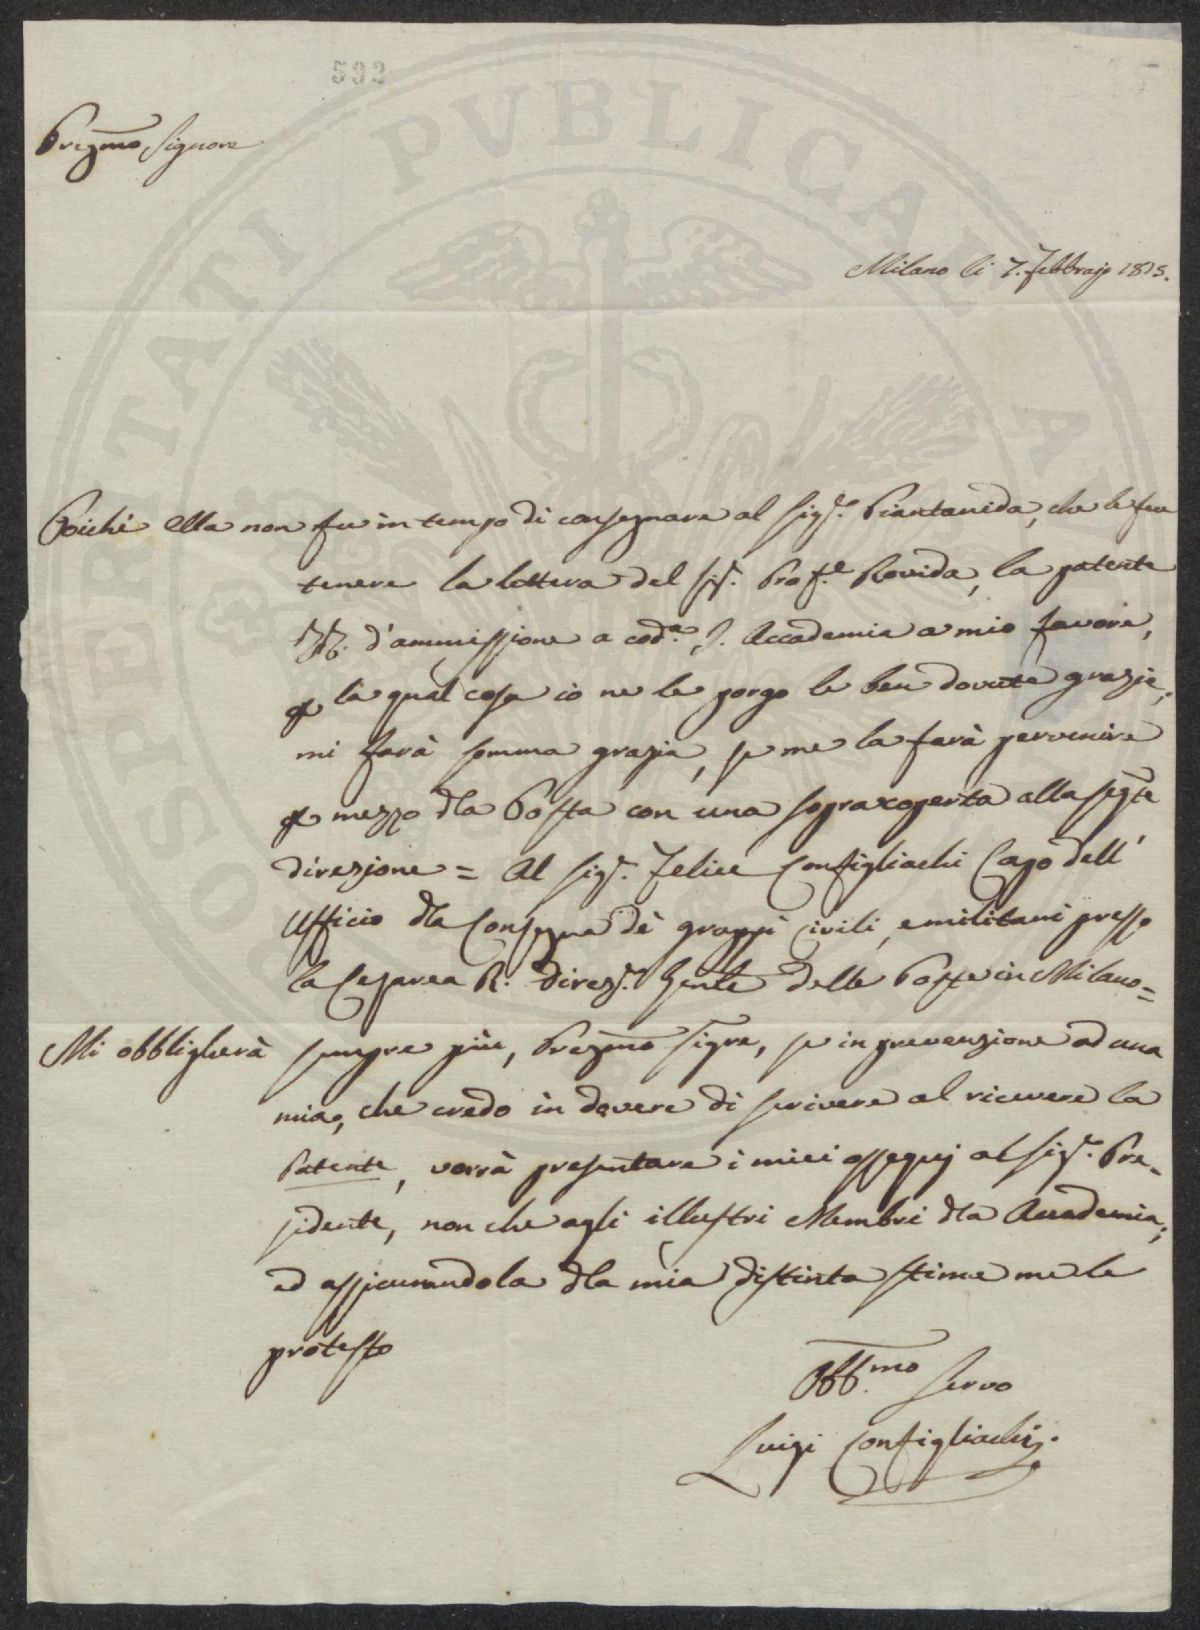 592
Prezmo Signore
Milano li 7. Febbrajo 1815.
Poichè Ella non fu in tempo di consegnare al Sigr. Piantanida, che le fece
tenere la lettera del Sigr. Profe Rovida, la patente
d'ammissione a coda. I. Accademia a mio favore,
p la qual cosa io ne le porgo le ben dovute grazie,
mi farà somma grazia, se me la farà pervenire
p mezzo dla Posta con una sopraxoperta alla segte
direzione = Al Sigr. Felice Configliachi Capo dell'
Ufficio dla Consegna de' gruppi civili, e militari presso
la Cesarea R. Direze. Genle delle Poste in Milano =
Mi obbligherà sempre più, Prezmo Sigre, se in prevenzione ad una
mia, che credo in dovere di scrivere al ricevere la
Patente, vorrà presentare i miei ossequj al Sigr. Pre-
sidente, non che agli illustri Membri dla Accademia;
ed assicurandola dla mia distinta stima me le
protesto
Obb.mo Servo
Luigi Configliachi.
OSPITATI PVBLICAE